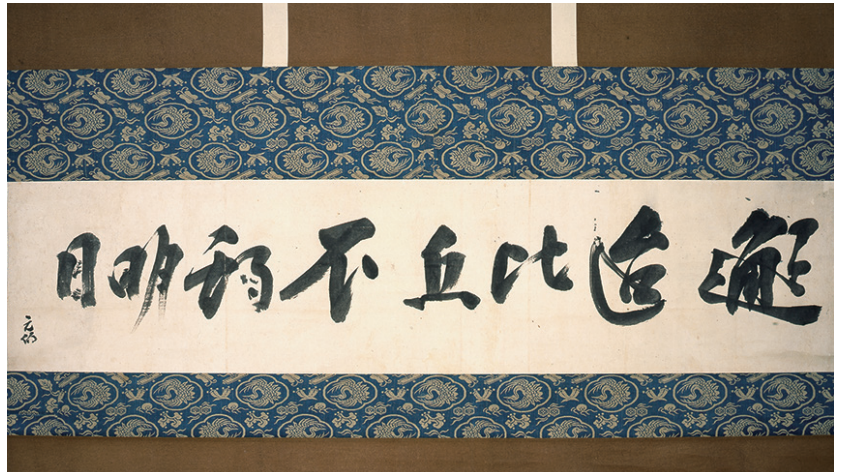 邂迨比丘不期明日
元伯